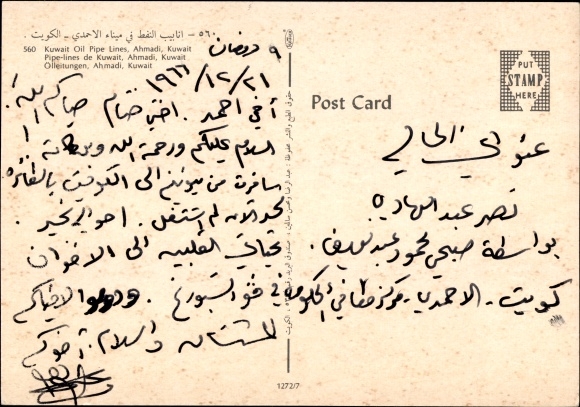 ٥٦٠ – انابيب النفط في ميناء الاحمدي – الكويت .
560 Kuwait Oil Pipe Lines, Ahmadi, Kuwait
Pipe-lines de Kuwait, Ahmadi, Kuwait
Olleitungen, Ahmadi, Kuwait
٩ رمضان
٢١/١٢/١٩٦٦
أخي احمد . اختي ختام صيامكم
السلام عليكم ورحمة الله وبركاته
سافرت من ميونيخ الى الكويت بالطائرة
لحد الآن لم اشتغل . احوالي بخير .
تحياتي القلبيه الى الاخوان
في
والسلام . أخوكم
Post Card
PUT
STAMP
HERE
عنواني الحالي
نصر عبد الهادي
بواسطة صبحي محمود عبد اللطيف .
كويت - الاحمدي - مركز
1272/7